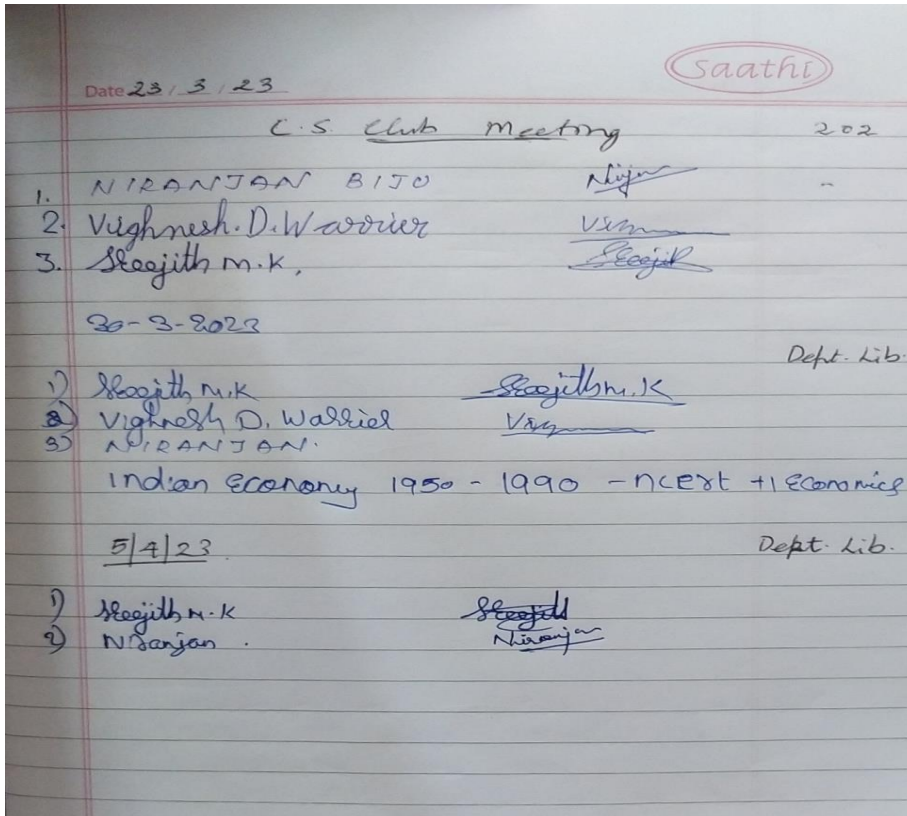 saathi
Date 23/3/23
C.S. Club Meeting 202
1. NIRANJAN BIJO
2. Vighnesh.D.Warrier
3. Sreejith m.k,
30-3-2023
Dept. Lib.
1) Sreejith M.K Sreejith m.K
2) Vighnesh D. Warrier
3) NIRANJAN.
Indian Economy 1950 - 1990 - ncert +1 Economics
5/4/23 Dept. Lib.
1) Sreejith M.K Sreejith
2) Niranjan. Niranjan